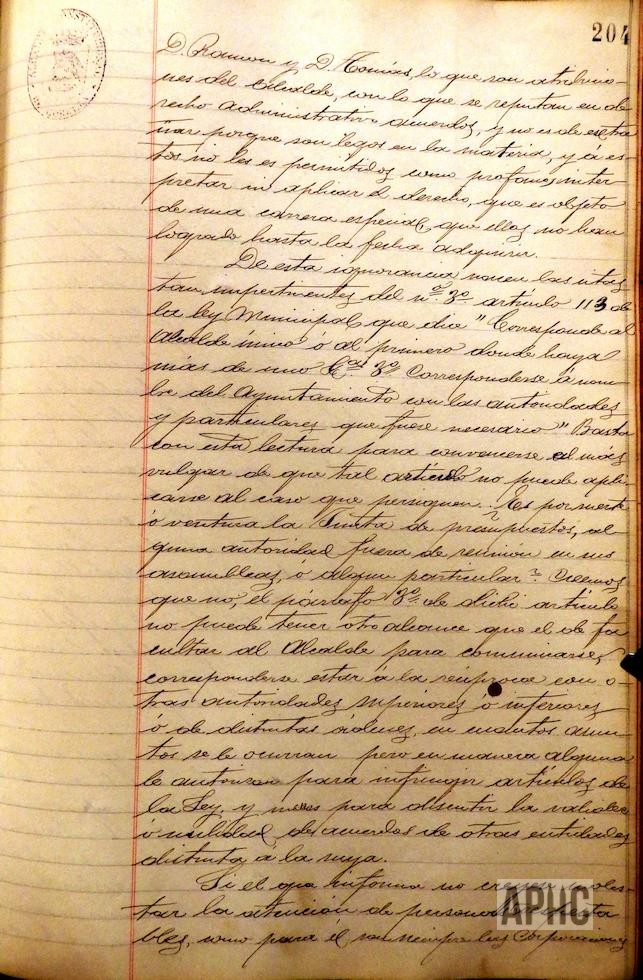 204
D. Ramon y D. Tomás, lo que son atribucio-
nes del Alcalde, con lo que se reputan en de
recho administrativo acuerdos, y no es de estra
ñar porque son legos en la materia, y á es-
tos no les es permitidos como profanos inter
pretar ni aplicar el derecho, que es objeto
de una carrera especial, que ellos no han
logrado hasta la fecha adquirir.
De esta ignorancia nacen las citas
tan impertinentes del nº 3º artículo 113 de
la ley Municipal que dice "Corresponde al
Alcalde único ó al primero donde haya
más de uno 3º Corresponderse á nom-
bre del Ayuntamiento con las autoridades
y particulares que fuese necesario" Basta
con esta lectura para convencerse el más
vulgar de que tal artículo no puede apli
carse al caso que persiguen. Es por suerte
ó ventura la Junta de presupuestos, al
guna autoridad fuera de reunión en sus
asambleas, ó algun particular? Creemos
que no, el párrafo 3º de dicho artículo
no puede tener otro alcance que el de fa
cultar al Alcalde para comunicarse,
corresponderse estar á la recíproca con o-
tras autoridades superiores ó inferiores
ó de distintas órdenes, en cuantos asun-
tos se le ocurran pero en manera alguna
le autorizan para infringir artículos de
la Ley, y menos para discutir la validez
o nulidad, de acuerdos de otras entidades
distinta á la suya.
Si el que informa no creyera moles-
tar la atención de personas
bles, como para él son siempre las Corporaciones
APHC